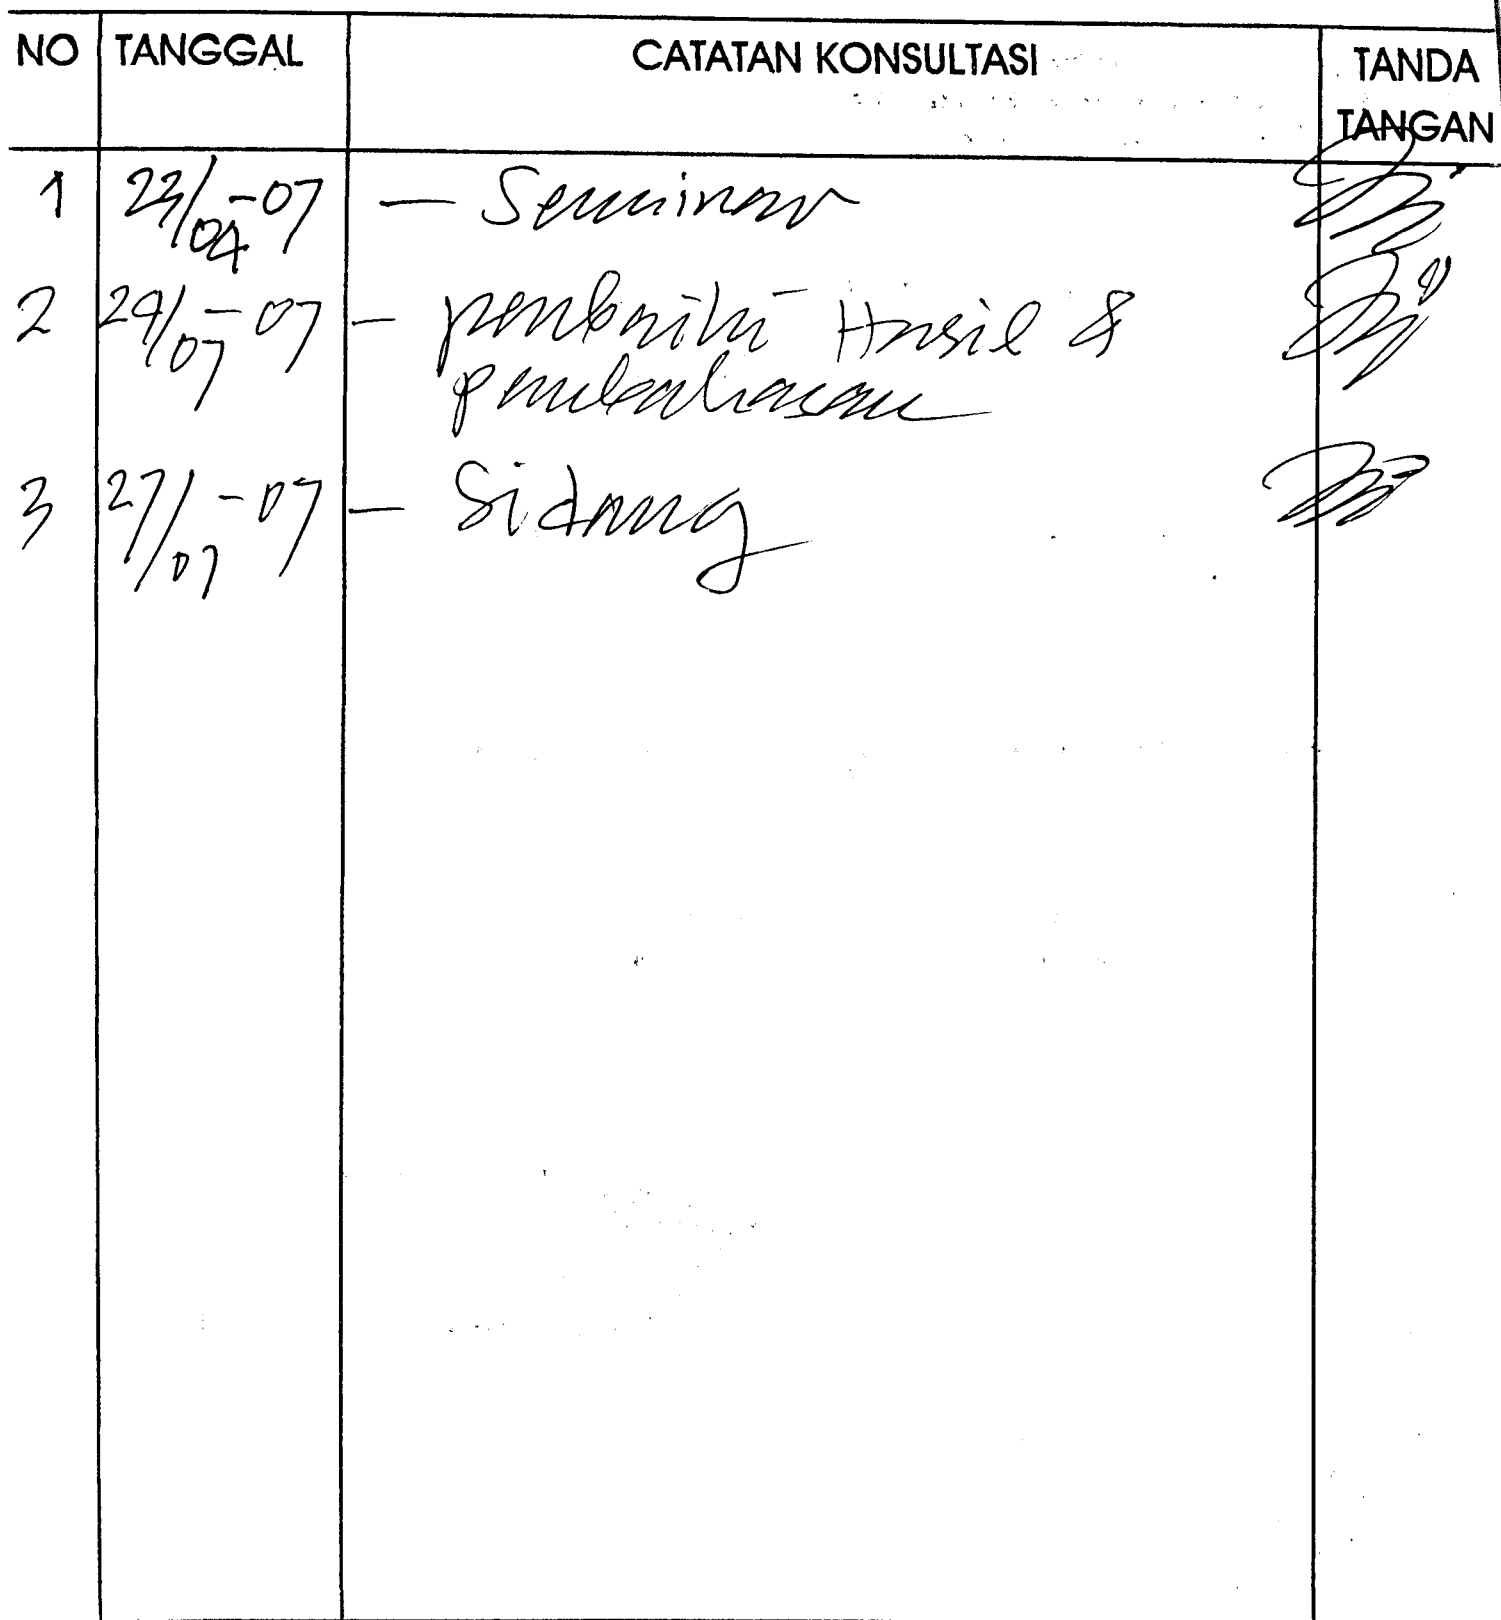 NO TANGGAL CATATAN KONSULTASI TANDA
TANGAN
1 23/04-07 - Seminar
2 24/07-07 - perbaiki Hasil &
pembahasan
3 27/07-07 - Sidang